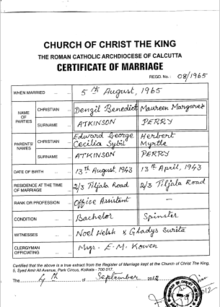 CHURCH OF CHRIST THE KING
THE ROMAN CATHOLIC ARCHDIOCESE OF CALCUTTA
CERTIFICATE OF MARRIAGE
REGD. No.: 08/1965
WHEN MARRIED 5th August, 1965
NAME OF PARTIES CHRISTIAN Denzil Benedict Maureen Margaret
SURNAME ATKINSON PERRY
PARENTS' NAMES CHRISTIAN Edward George Herbert
Cecilia Sybil Myrtle
SURNAME ATKINSON PERRY
DATE OF BIRTH 13th August 1943 13th April, 1943
RESIDENCE AT THE TIME OF MARRIAGE 2/3 Tiljala Road 2/3 Tiljala Road
RANK OR PROFESSION Office Assistant
CONDITION Bachelor Spinster
WITNESSES Noel &  Gladys
CLERGYMAN OFFICIATING Msgr. E.M.
Certified that the above is a true extract from the Register of Marriage kept at the Church of Christ The King,
5, Syed Amir Ali Avenue, Park Circus, Kolkata - 700 017.
The 4th of September